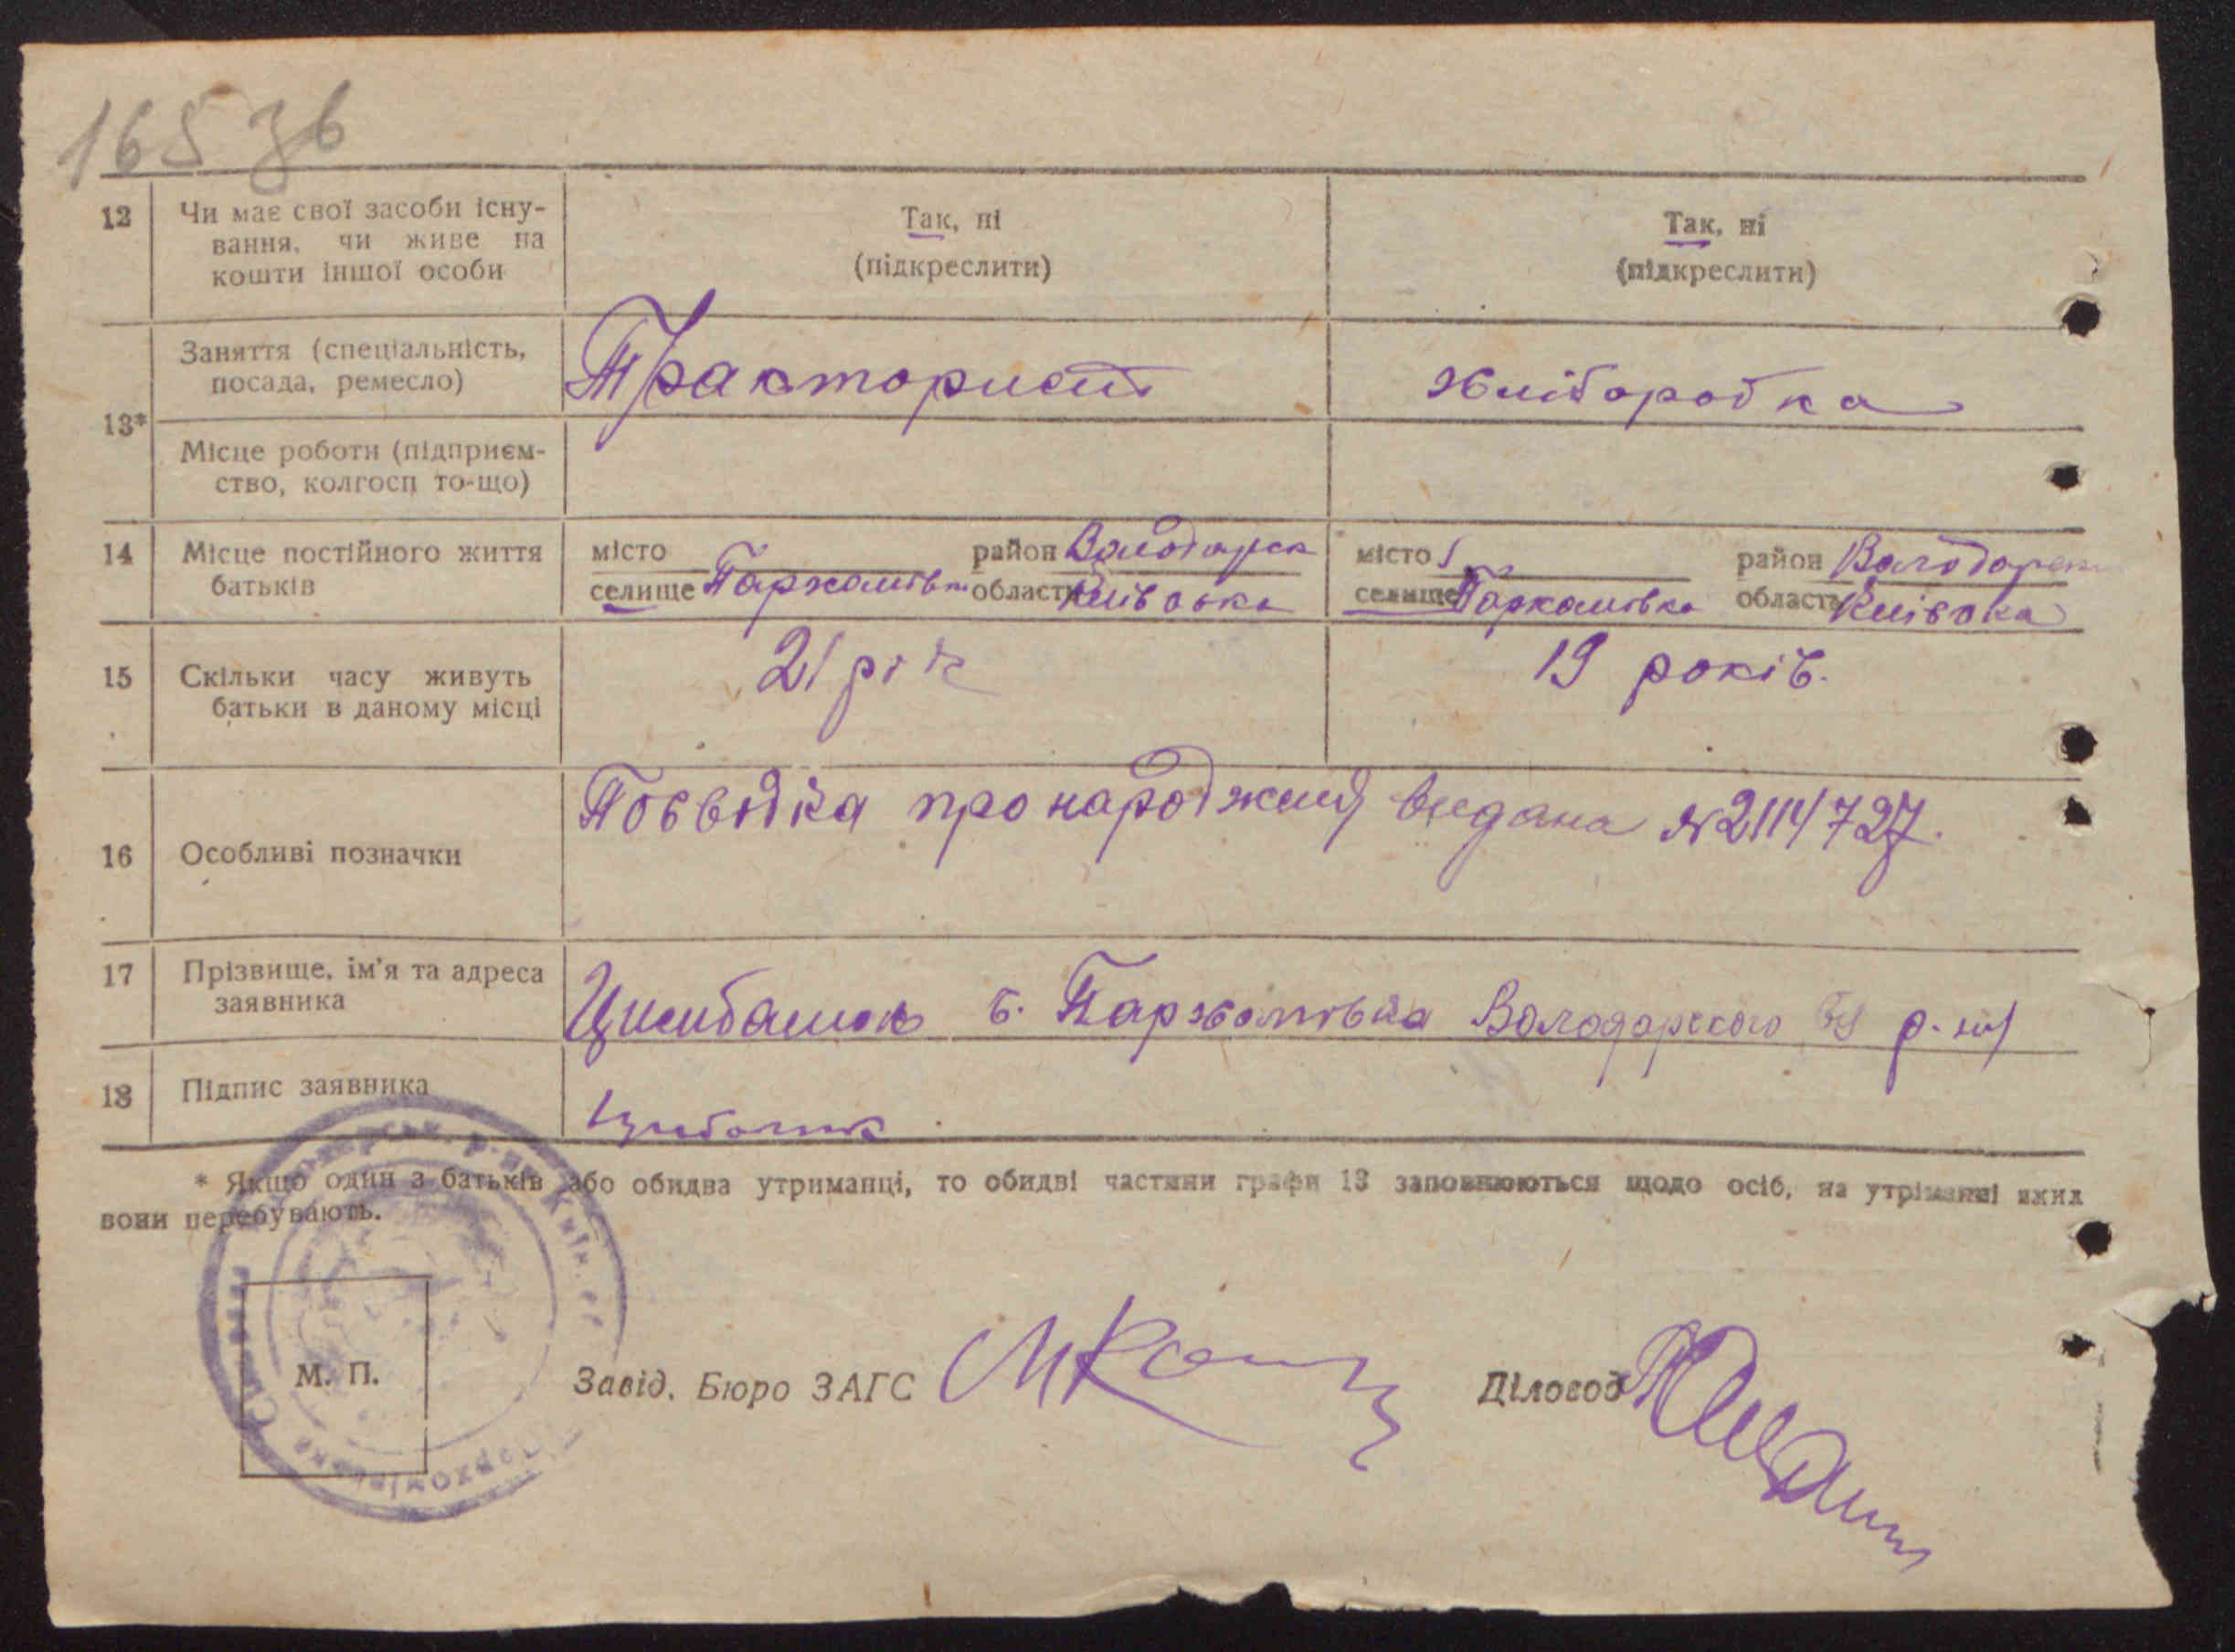 165 зв
12 Чи має свої засоби існу-
вання, чи живе на
кошти іншої особи
Так, ні
(підкреслити)
Так, ні
(підкреслити)
13*
Заняття (спеціальність,
посада, ремесло)
Тракторист
хліборобка
Місце роботи (підприєм-
ство, колгосп то-що)
14 Місце постійного життя
батьків
місто район Володарск
селище Пархомівка область Київська
місто район Володарск
селище Пархомівка область Київска
15 Скільки часу живуть
батьки в даному місці
21 рік
19 років.
16 Особливі позначки
Посвідка про народження видана № 2114727.
17 Прізвище, ім'я та адреса
заявника
с. Пархомівка Володарского р-ну
18 Підпис заявника
* Якщо один з батьків або обидва утриманці, то обидві частини графи 13 заповнюються щодо осіб, на утріманні яких
вони перебувають.
М. П.
Завід. Бюро ЗАГС
Діловод